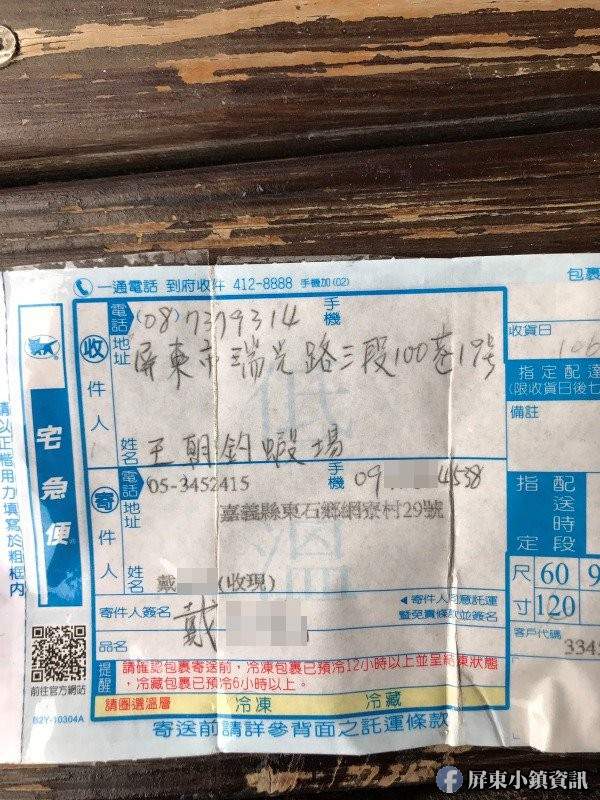 一通電話 到府收件 412-8888 手機加(02)
包裹
電話 (08)7379314 手機
地址 屏東市瑞光路三段100巷19號
收件人
姓名 王朝釣蝦場
收貨日
106
指定配達
(限收貨日後七
備註
宅急便
請以正楷用力填寫於粗框內
電話 05-3452415 手機 09 4538
地址 嘉義縣東石鄉網寮村29號
寄件人
姓名 戴 (收現)
指定 配送時段
尺寸 60 9
120
寄件人簽名 戴
寄件人同意託運
暨免責條款並簽名
客戶代碼
334
品名
提醒 請確認包裹寄送前,冷凍包裹已預冷12小時以上並呈結凍狀態
,冷藏包裹已預冷6小時以上。
請圈選溫層 冷凍 冷藏
前往官方網站
B2Y-10304A
寄送前請詳參背面之託運條款
屏東小鎮資訊